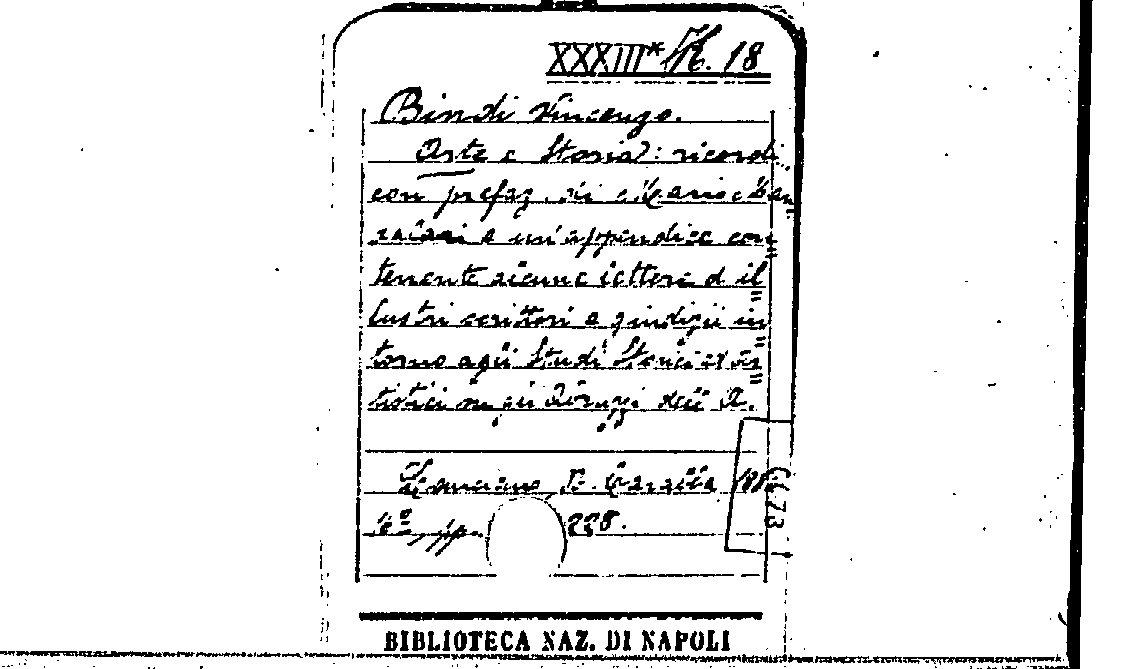 XXXIII* K. 18
Bindi Vincenzo.
Arte e Storia: ricordi
con prefaz. di Mario Man
ralari e un'appendice con
tenente alcune lettere d'il
lustri scrittori e giudizii in
torno agli Studi Storici ed ar
tistici su gli Abruzzi dell'A.
Lanciano, R. Carabba 188
16º, pp. 228.
6673
BIBLIOTECA NAZ. DI NAPOLI